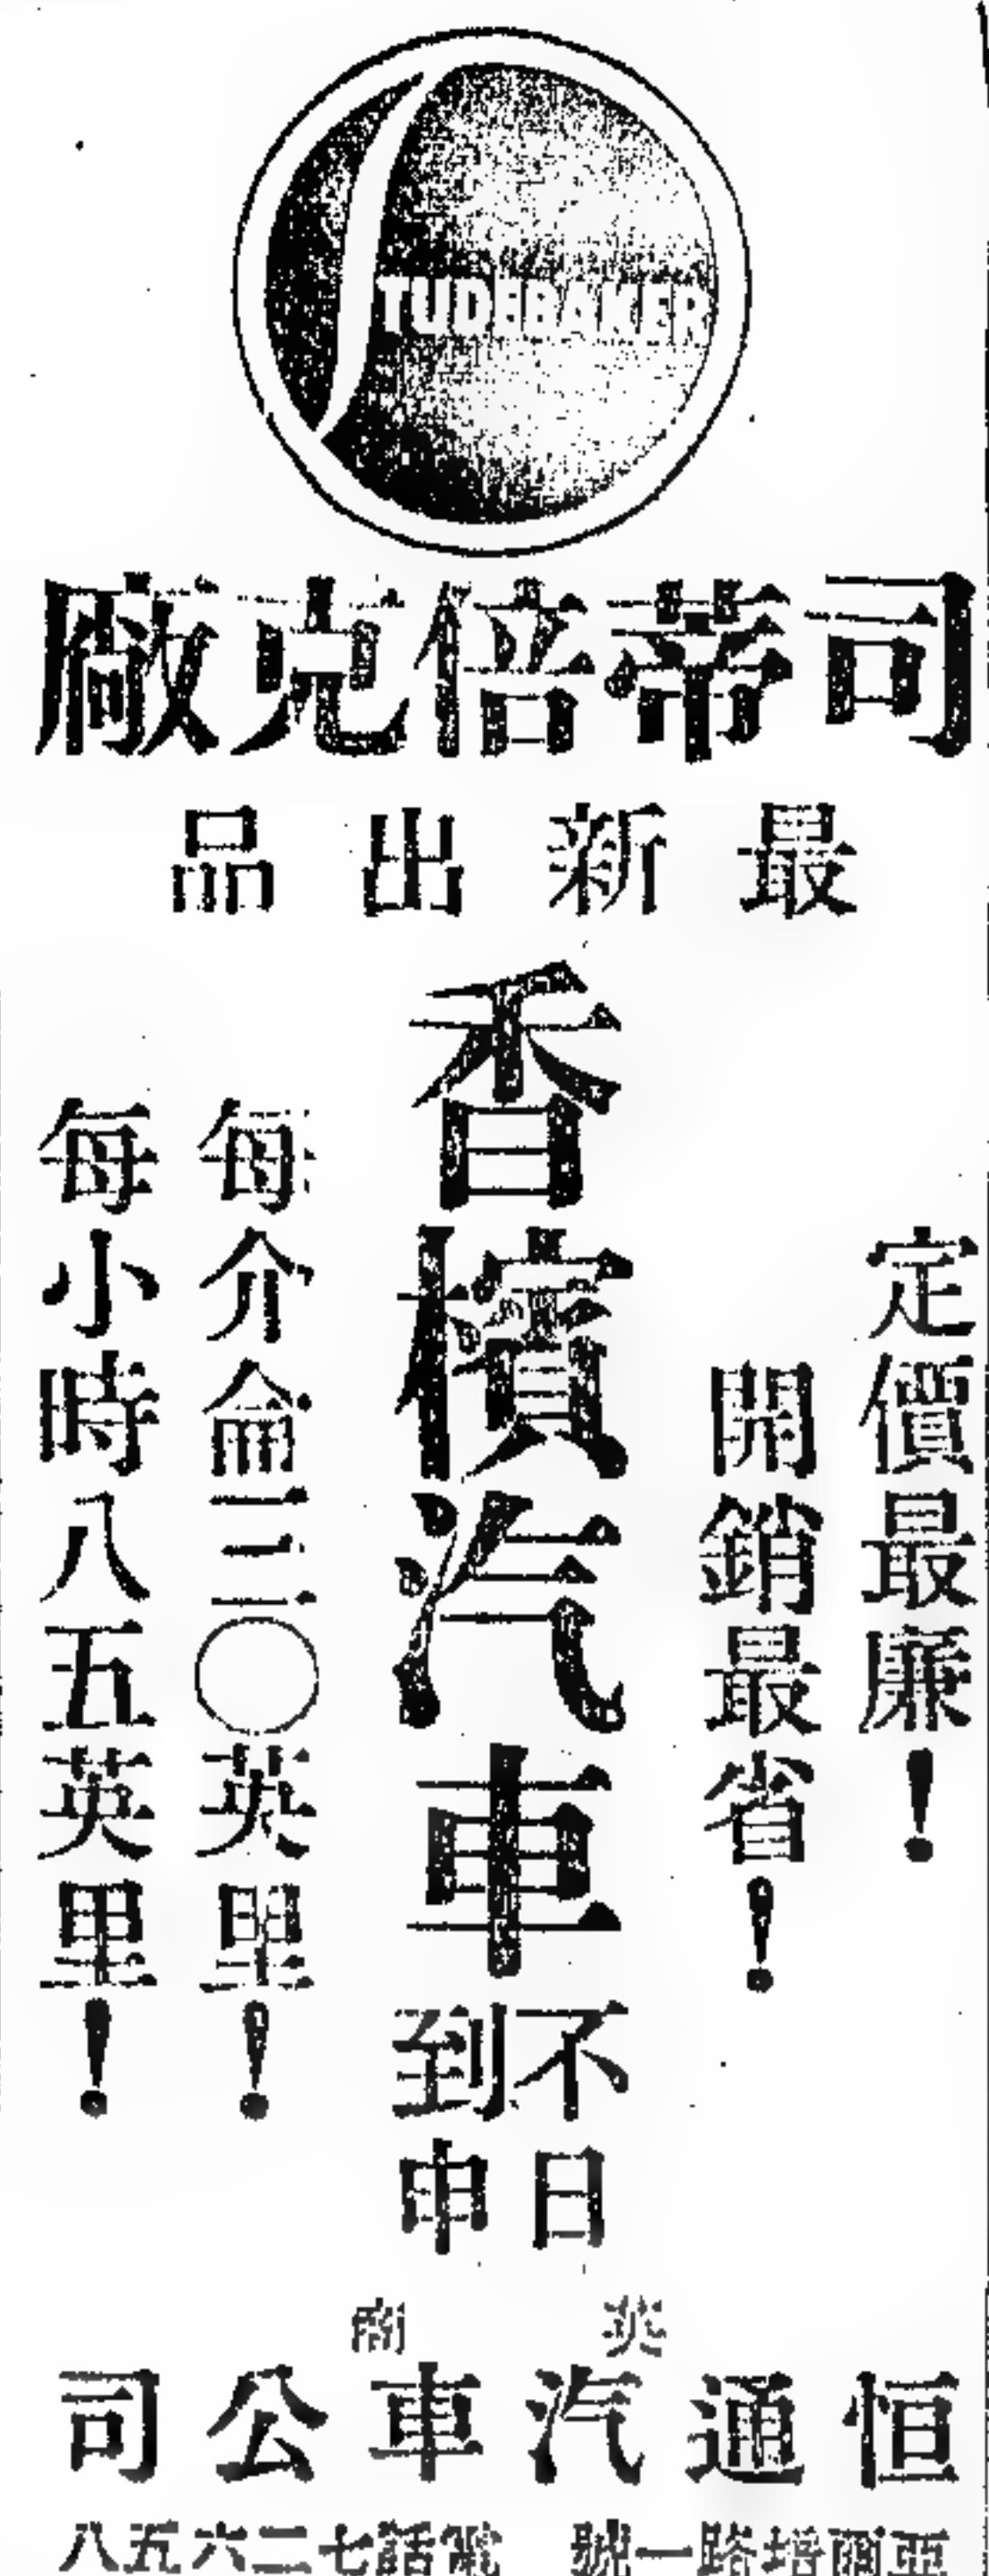 STUDEBAKER
司蒂倍克廠
最新出品
定價最廉！
開銷最省！
香檳汽車
不日
到申
每介侖三〇英里！
每小時八五英里！
英商
恒通汽車公司
亞爾培路一號 電話七二六五八